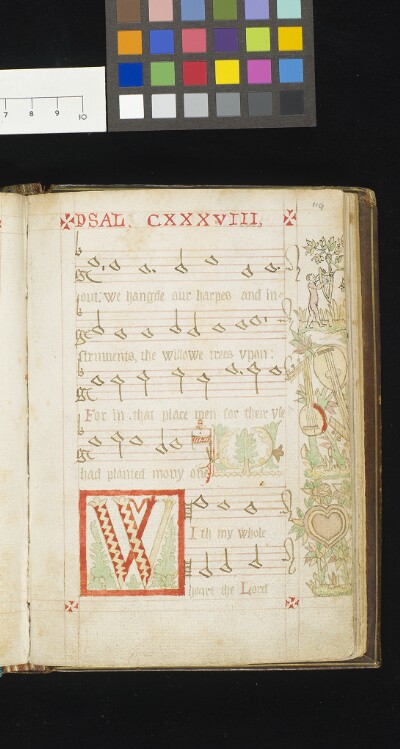 7 8 9 10
119
PSAL. CXXXVIII,
out, we hangde our harpes and in-
struments, the willowe trees vpan:
For in that place men for their vse
had planted mony ane
W
Ith my whole
heart the Lord